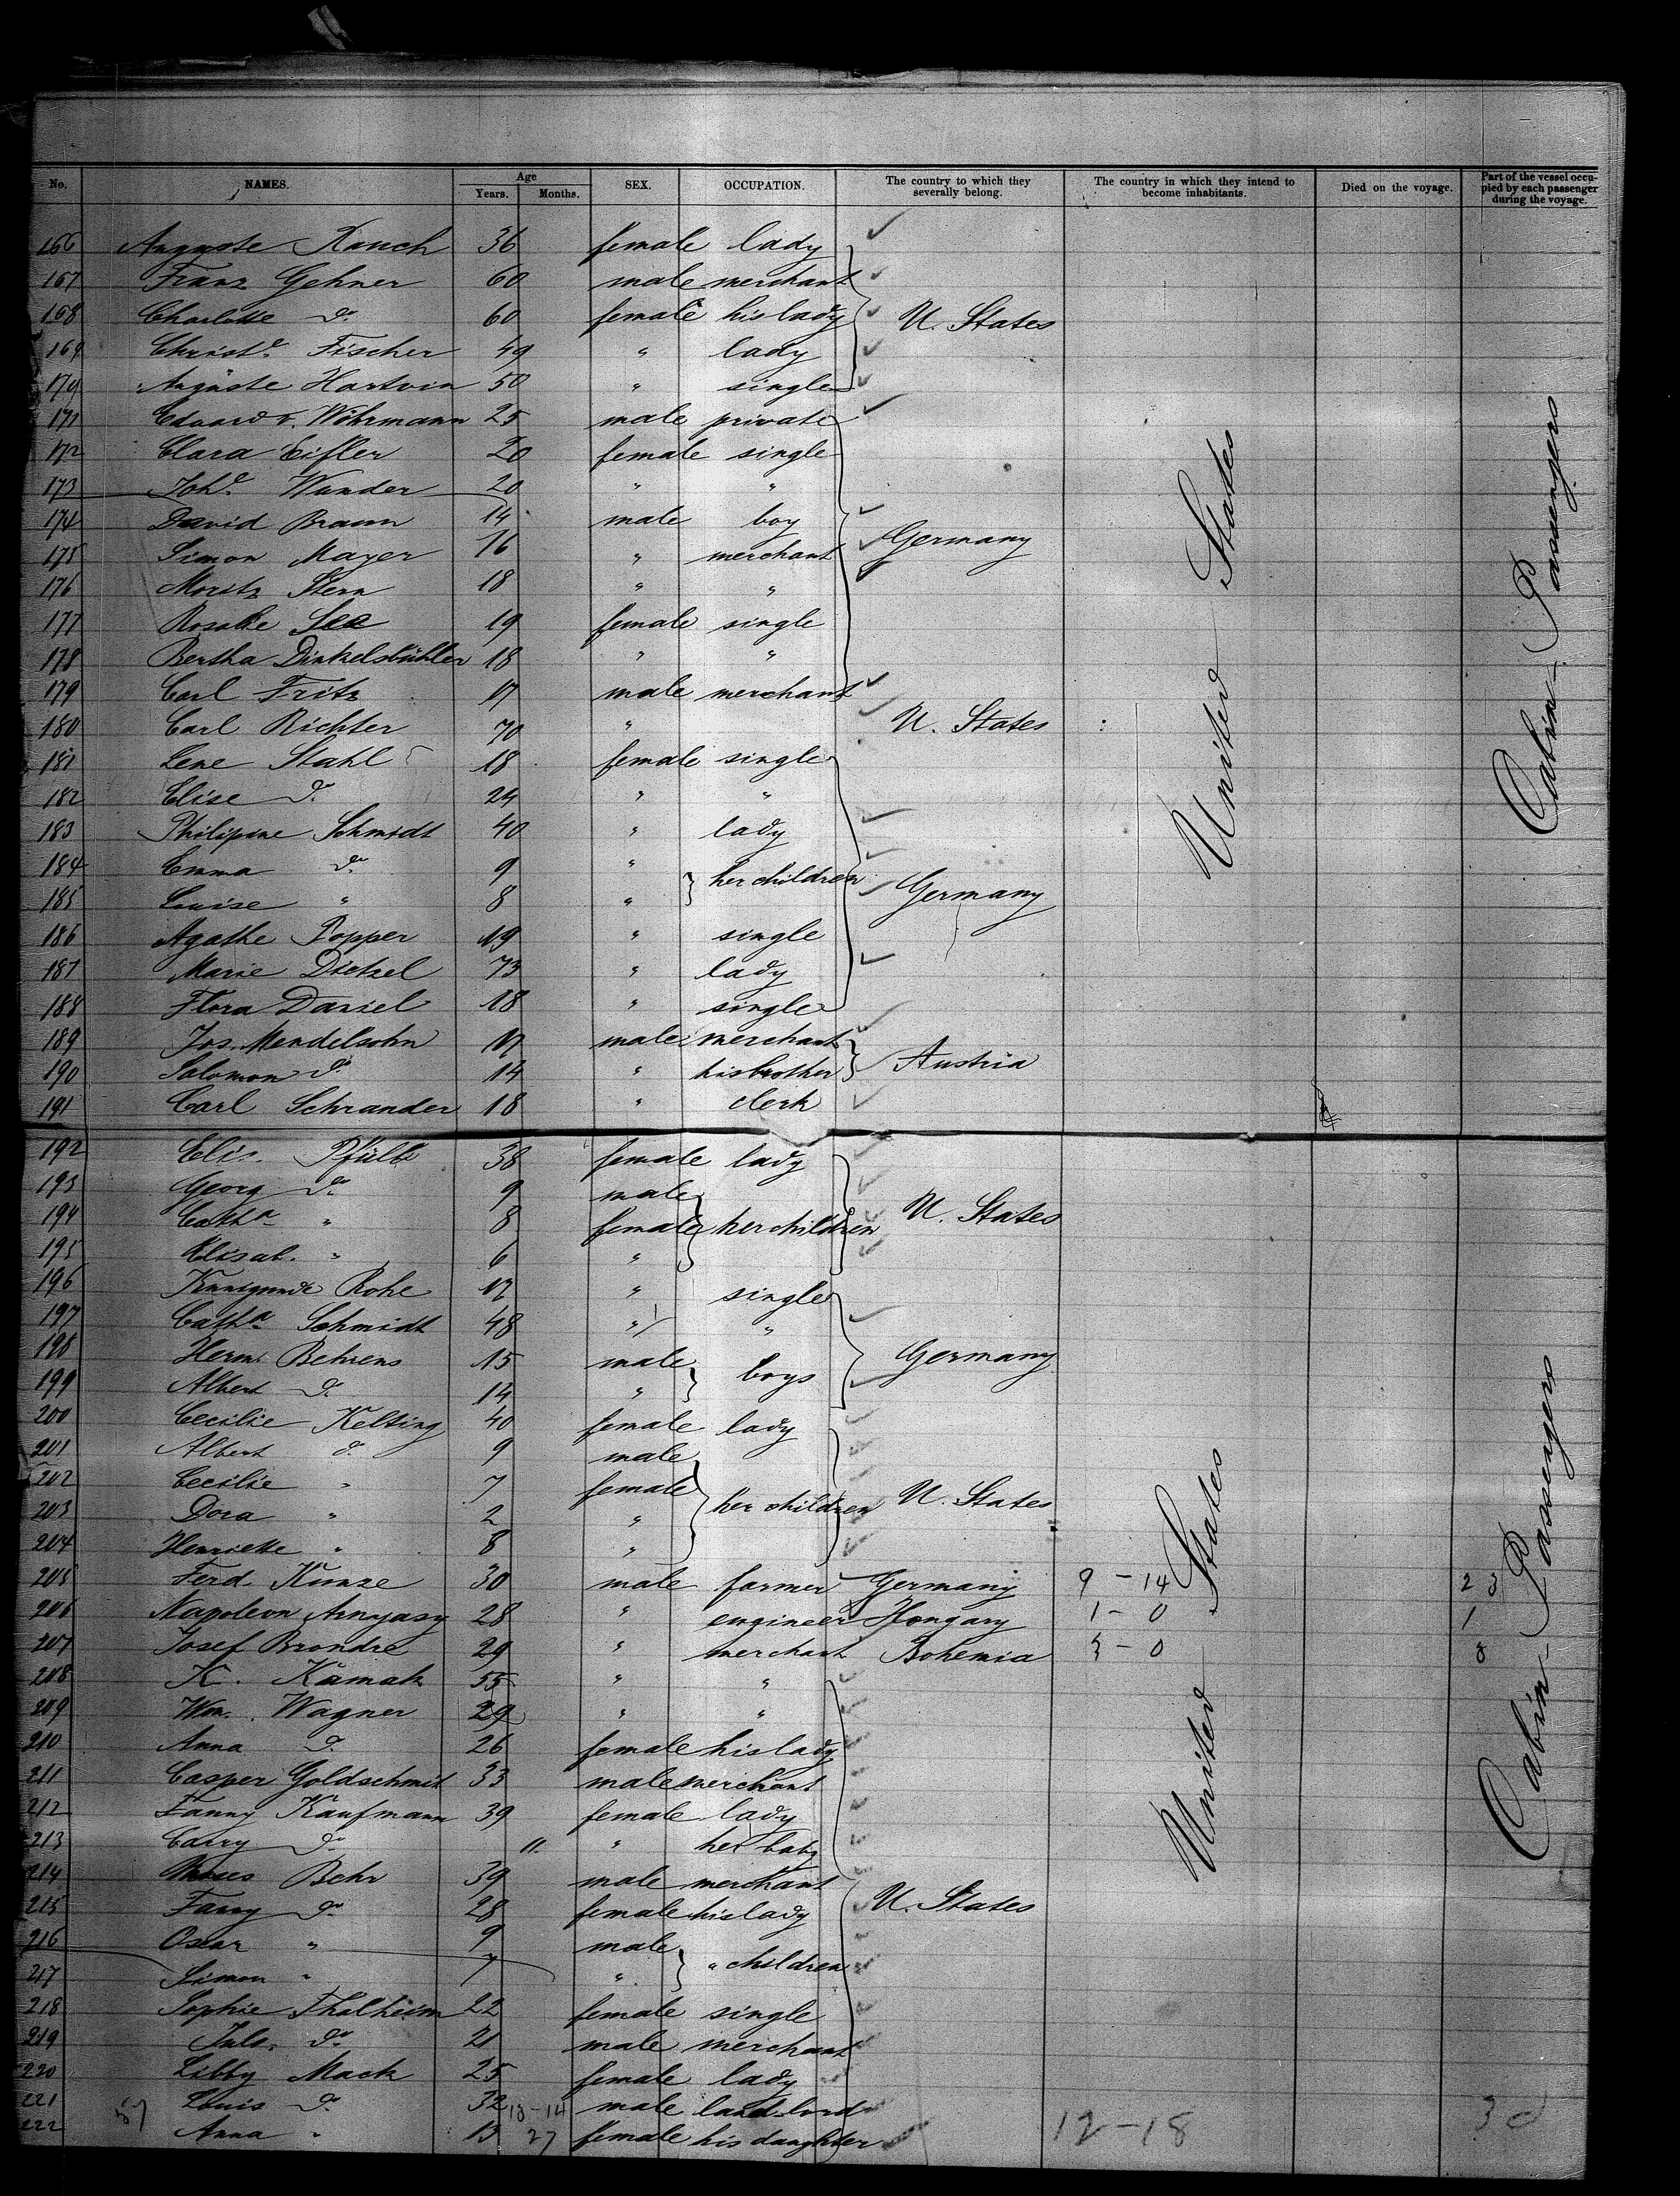 No. NAMES. Age Years. Months. SEX. OCCUPATION. The country to which they severally belong. The country in which they intend to become inhabitants. Died on the voyage. Part of the vessel occupied by each passenger during the voyage.
166 Auguste Rauch 36 female lady
167 Franz Gehner 60 male merchant
168 Charlotte do. 60 female his lady U. States
169 Christe. Fischer 49 " lady
170 Auguste Hartvin 50 " single
171 Eduard v. Wöhrmann 25 male private
172 Clara Eifler 20 female single
173 Johe. Wunder 20 " "
174 David Braun 14 male boy
175 Simon Mayer 16 " merchant Germany
176 Moritz Stern 18 " "
177 Rosalie See 19 female single
178 Bertha Dinkelsbühler 18 " "
179 Carl Fritz 17 male merchant
180 Carl Richter 70 " U. States
181 Lene Stahl 18 female single
182 Elise do. 24 " "
183 Philipine Schmidt 40 " lady
184 Emma do. 9 " her children
185 Louise " 8 " Germany
186 Agathe Popper 19 " single
187 Marie Dietzel 73 " lady
188 Flora Daniel 18 " single
189 Jos. Mendelsohn 17 male merchant
190 Salomon do. 14 " his brother Austria
191 Carl Schrander 18 " clerk
United States
Cabin-Passengers
192 Elis. Pfülb 38 female lady
193 Georg do. 9 male
194 Catha. " 8 female her children U. States
195 Elisab. " 6 "
196 Kunigunde Rohe 17 " single
197 Catha. Schmidt 48 " "
198 Herm. Behrens 15 male boys Germany
199 Albert do. 14 "
200 Cecilie Kelting 40 female lady
201 Albert do. 9 male
202 Cecilie " 7 female
203 Dora " 2 " her children U. States
204 Henriette " 8 "
205 Ferd. Kunze 30 male farmer Germany 9 - 14 23
206 Napoleon Arnyasy 28 " engineer Hongary 1 - 0 1
207 Josef Brondre 29 " merchant Bohemia 3 - 0 8
208 K. Kamak 55 " "
209 Wm. Wagner 29 " "
210 Anna do. 26 female his lady
211 Casper Goldschmit 33 male merchant
212 Fanny Kaufmann 39 female lady
213 Carry do. 11. " her baby
214 Moses Behr 39 male merchant
215 Fanny do. 28 female his lady U. States
216 Oscar " 9 male
217 Simon " 7 " " children
218 Sophie Thalheim 22 female single
219 Juls. do. 21 male merchant
220 Libby Mack 25 female lady
221 Louis do. 32 male landlord
222 Anna " 13 female his daughter
57 13-14 27 12-18
United States
Cabin-Passengers